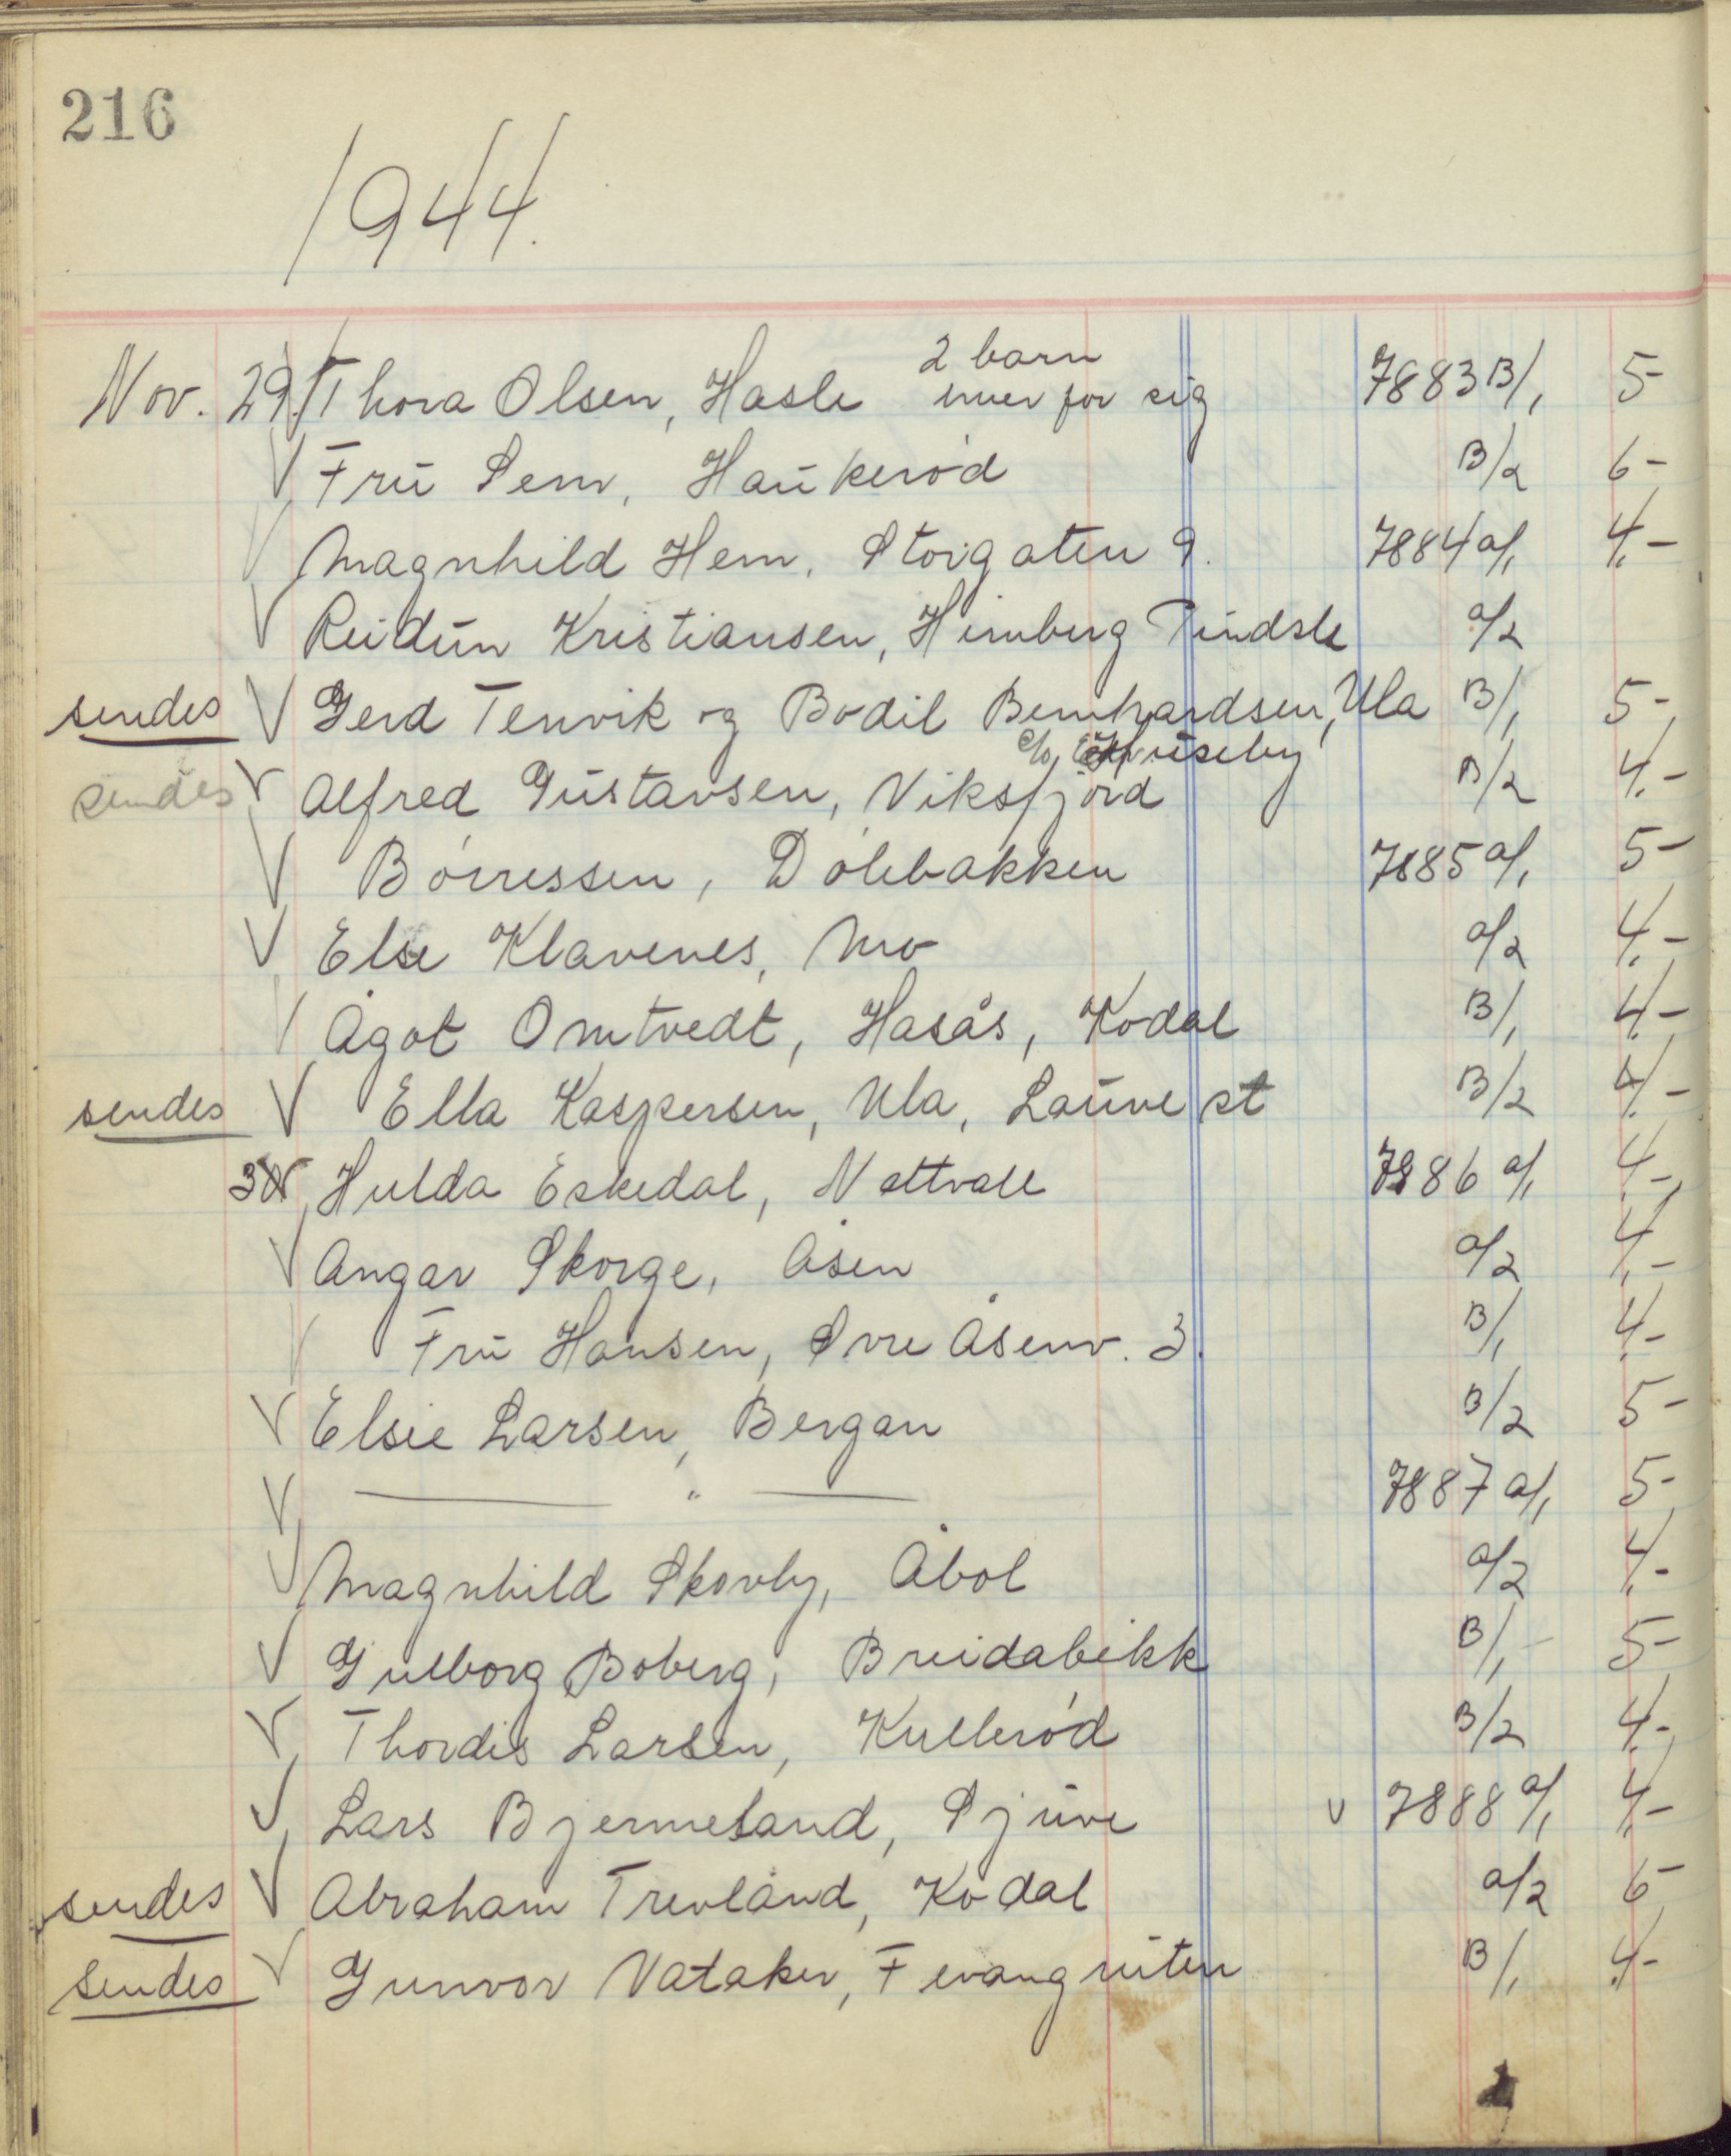 216
1944.
2 barn
Nov. 29. Thora Olsen, Hasle hver for sig 7883 B/1 5-
Frü Sem, Haükerød B/2 6-
Magnhild Hem, Storgaten 9. 7884 a/1 4,-
Reidün Kristiansen, Himberg Pindsle a/2
sendes Gerd Tenvik og Bodil Bernhardsen, Ula B/1 5-
c/o Hüseby
sendes Alfred Güstavsen, Viksfjord B/2 4,-
Børressen, Dølebakken 7885 a/1 5-
Else Klavenes, Mo a/2 4,-
Ågot Omtvedt, Hasås, Kodal B/1 4,-
sendes Ella Kaspersen, Ula, Laüve st B/2 4,-
30 Hulda Eskedal, Nattvall 7886 a/1 4,-
Angar Skorge, Åsen a/2 4,-
Frü Hansen, Øvre Åsenv. 3. B/1 4,-
Elsie Larsen, Bergan B/2 5-
— " — 7887 a/1 5-
Magnhild Skovly, Åbol a/2 4,-
Gulborg Boberg, Breidablikk B/1 5-
Thordis Larsen, Kullerød B/2 4,-
Lars Bjermeland, Sjüve v 7888 a/1 4,-
sendes Abraham Trevland, Kodal a/2 6-
sendes Gunvor Nataker, Fevang rüten B/1 4,-